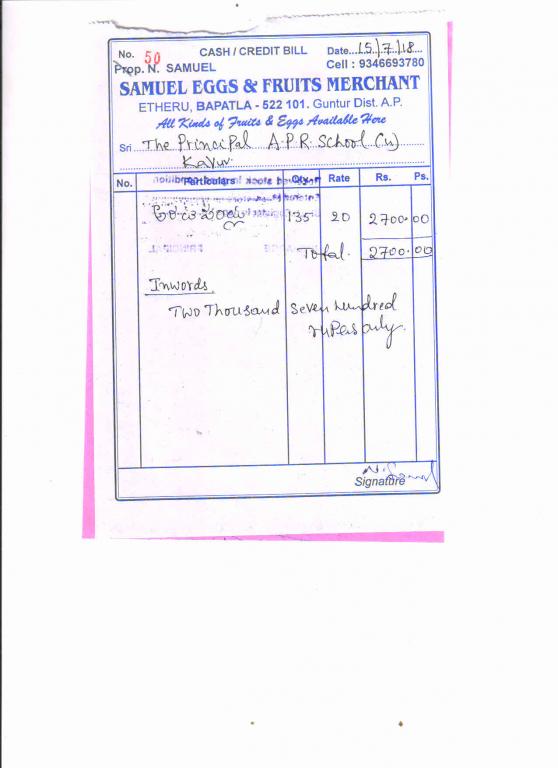 No. 50 CASH / CREDIT BILL Date...15/7/18...
Prop. N. SAMUEL Cell : 9346693780
SAMUEL EGGS & FRUITS MERCHANT
ETHERU, BAPATLA - 522 101. Guntur Dist. A.P.
All Kinds of Fruits & Eggs Available Here
Sri The Principal A.P.R. School (u)
Kavur
No. Particulars Qty. Rate Rs. Ps.
అరటి పండ్లు 135 20 2700.00
Total. 2700.00
Inwords
Two Thousand Seven hundred
ruPees only.
Signature